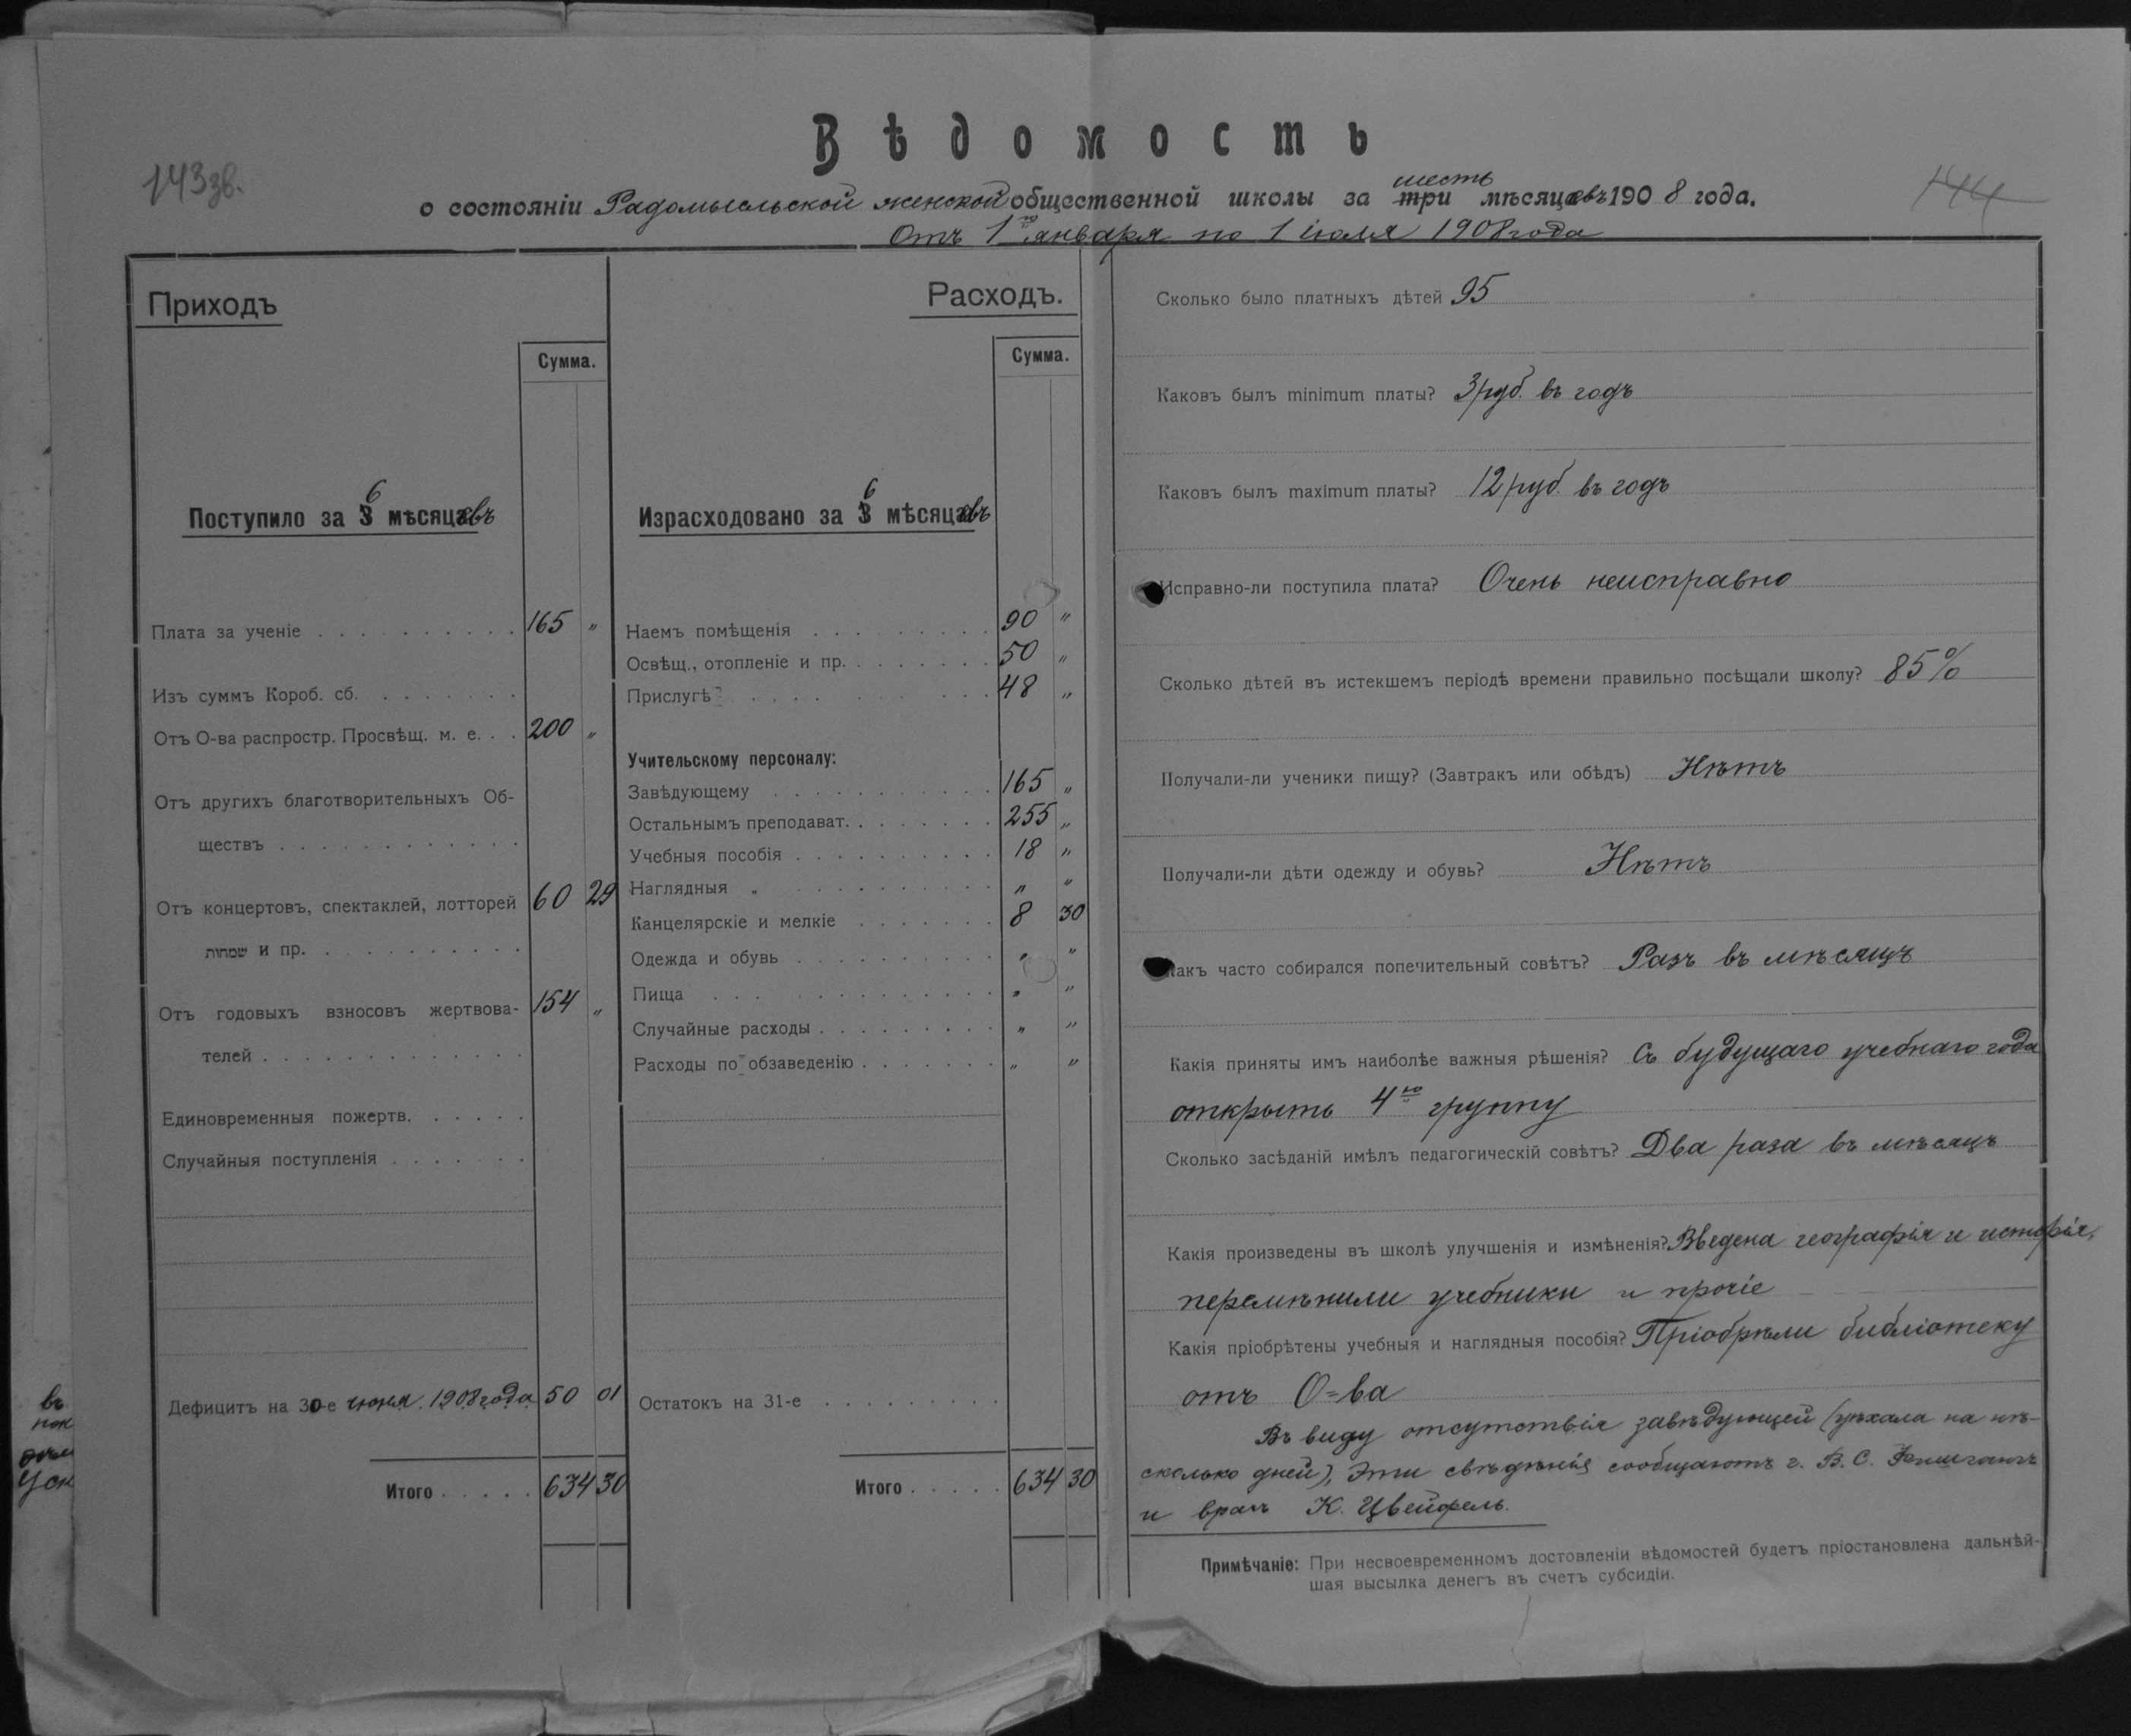 Вѣдомость
143 зв.
144
шесть
о состояніи Радомысльской женской общественной школы за три мѣсяцевъ 1908 года.
Отъ 1го января по 1 іюля 1908 года
Приходъ
Сумма.
6
Поступило за 3 мѣсяцевъ
Плата за ученіе . . . . . . . . . . 165 „
Изъ суммъ Короб. сб. . . . . . . .
Отъ О-ва распростр. Просвѣщ. м. е. . . 200 „
Отъ другихъ благотворительныхъ Об-
ществъ . . . . . . . . . . . .
Отъ концертовъ, спектаклей, лотторей 60 29
שמחות и пр. . . . . . . . . . .
Отъ годовыхъ взносовъ жертвова- 154 „
телей . . . . . . . . . . . . .
Единовременныя пожертв. . . . . .
Случайныя поступленія . . . . . . .
Дефицитъ на 30-е іюня 1908 года 50 01
Итого . . . . . 634 30
Расходъ.
Сумма.
6
Израсходовано за 3 мѣсяцевъ
Наемъ помѣщенія . . . . . . . . . 90 „
Освѣщ., отопленіе и пр. . . . . . . . 50 „
Прислугѣ . . . . . . . . . . . 48 „
Учительскому персоналу:
Завѣдующему . . . . . . . . . . . 165 „
Остальнымъ преподават. . . . . . . . 255 „
Учебныя пособія . . . . . . . . . . 18 „
Наглядныя „ . . . . . . . . . . „ „
Канцелярскіе и мелкіе . . . . . . . 8 30
Одежда и обувь . . . . . . . . . . „ „
Пища . . . . . . . . . . . . . „ „
Случайные расходы . . . . . . . . . „ „
Расходы по обзаведенію . . . . . . . „ „
Остатокъ на 31-е . . . . . . . . .
Итого . . . . . 634 30
Сколько было платныхъ дѣтей 95
Каковъ былъ minimum платы? 3 руб. въ годъ
Каковъ былъ maximum платы? 12 руб. въ годъ
Исправно-ли поступила плата? Очень неисправно
Сколько дѣтей въ истекшемъ періодѣ времени правильно посѣщали школу? 85%
Получали-ли ученики пищу? (Завтракъ или обѣдъ) Нѣтъ
Получали-ли дѣти одежду и обувь? Нѣтъ
Какъ часто собирался попечительный совѣтъ? Разъ въ мѣсяцъ
Какія приняты имъ наиболѣе важныя рѣшенія? Съ будущаго учебнаго года
открыть 4ю группу
Сколько засѣданій имѣлъ педагогическій совѣтъ? Два раза въ мѣсяцъ
Какія произведены въ школѣ улучшенія и измѣненія? Введена географія и исторія,
перемѣнили учебники и прочіе
Какія пріобрѣтены учебныя и наглядныя пособія? Пріобрѣли библіотеку
отъ О=ва
Въ виду отсутствія завѣдующей (уѣхала на нѣ-
сколько дней), Эти свѣдѣнія сообщаютъ г. В. С.
и врачъ К. Цвейфель.
Примѣчаніе: При несвоевременномъ достовленіи вѣдомостей будетъ пріостановлена дальнѣй-
шая высылка денегъ въ счетъ субсидіи.